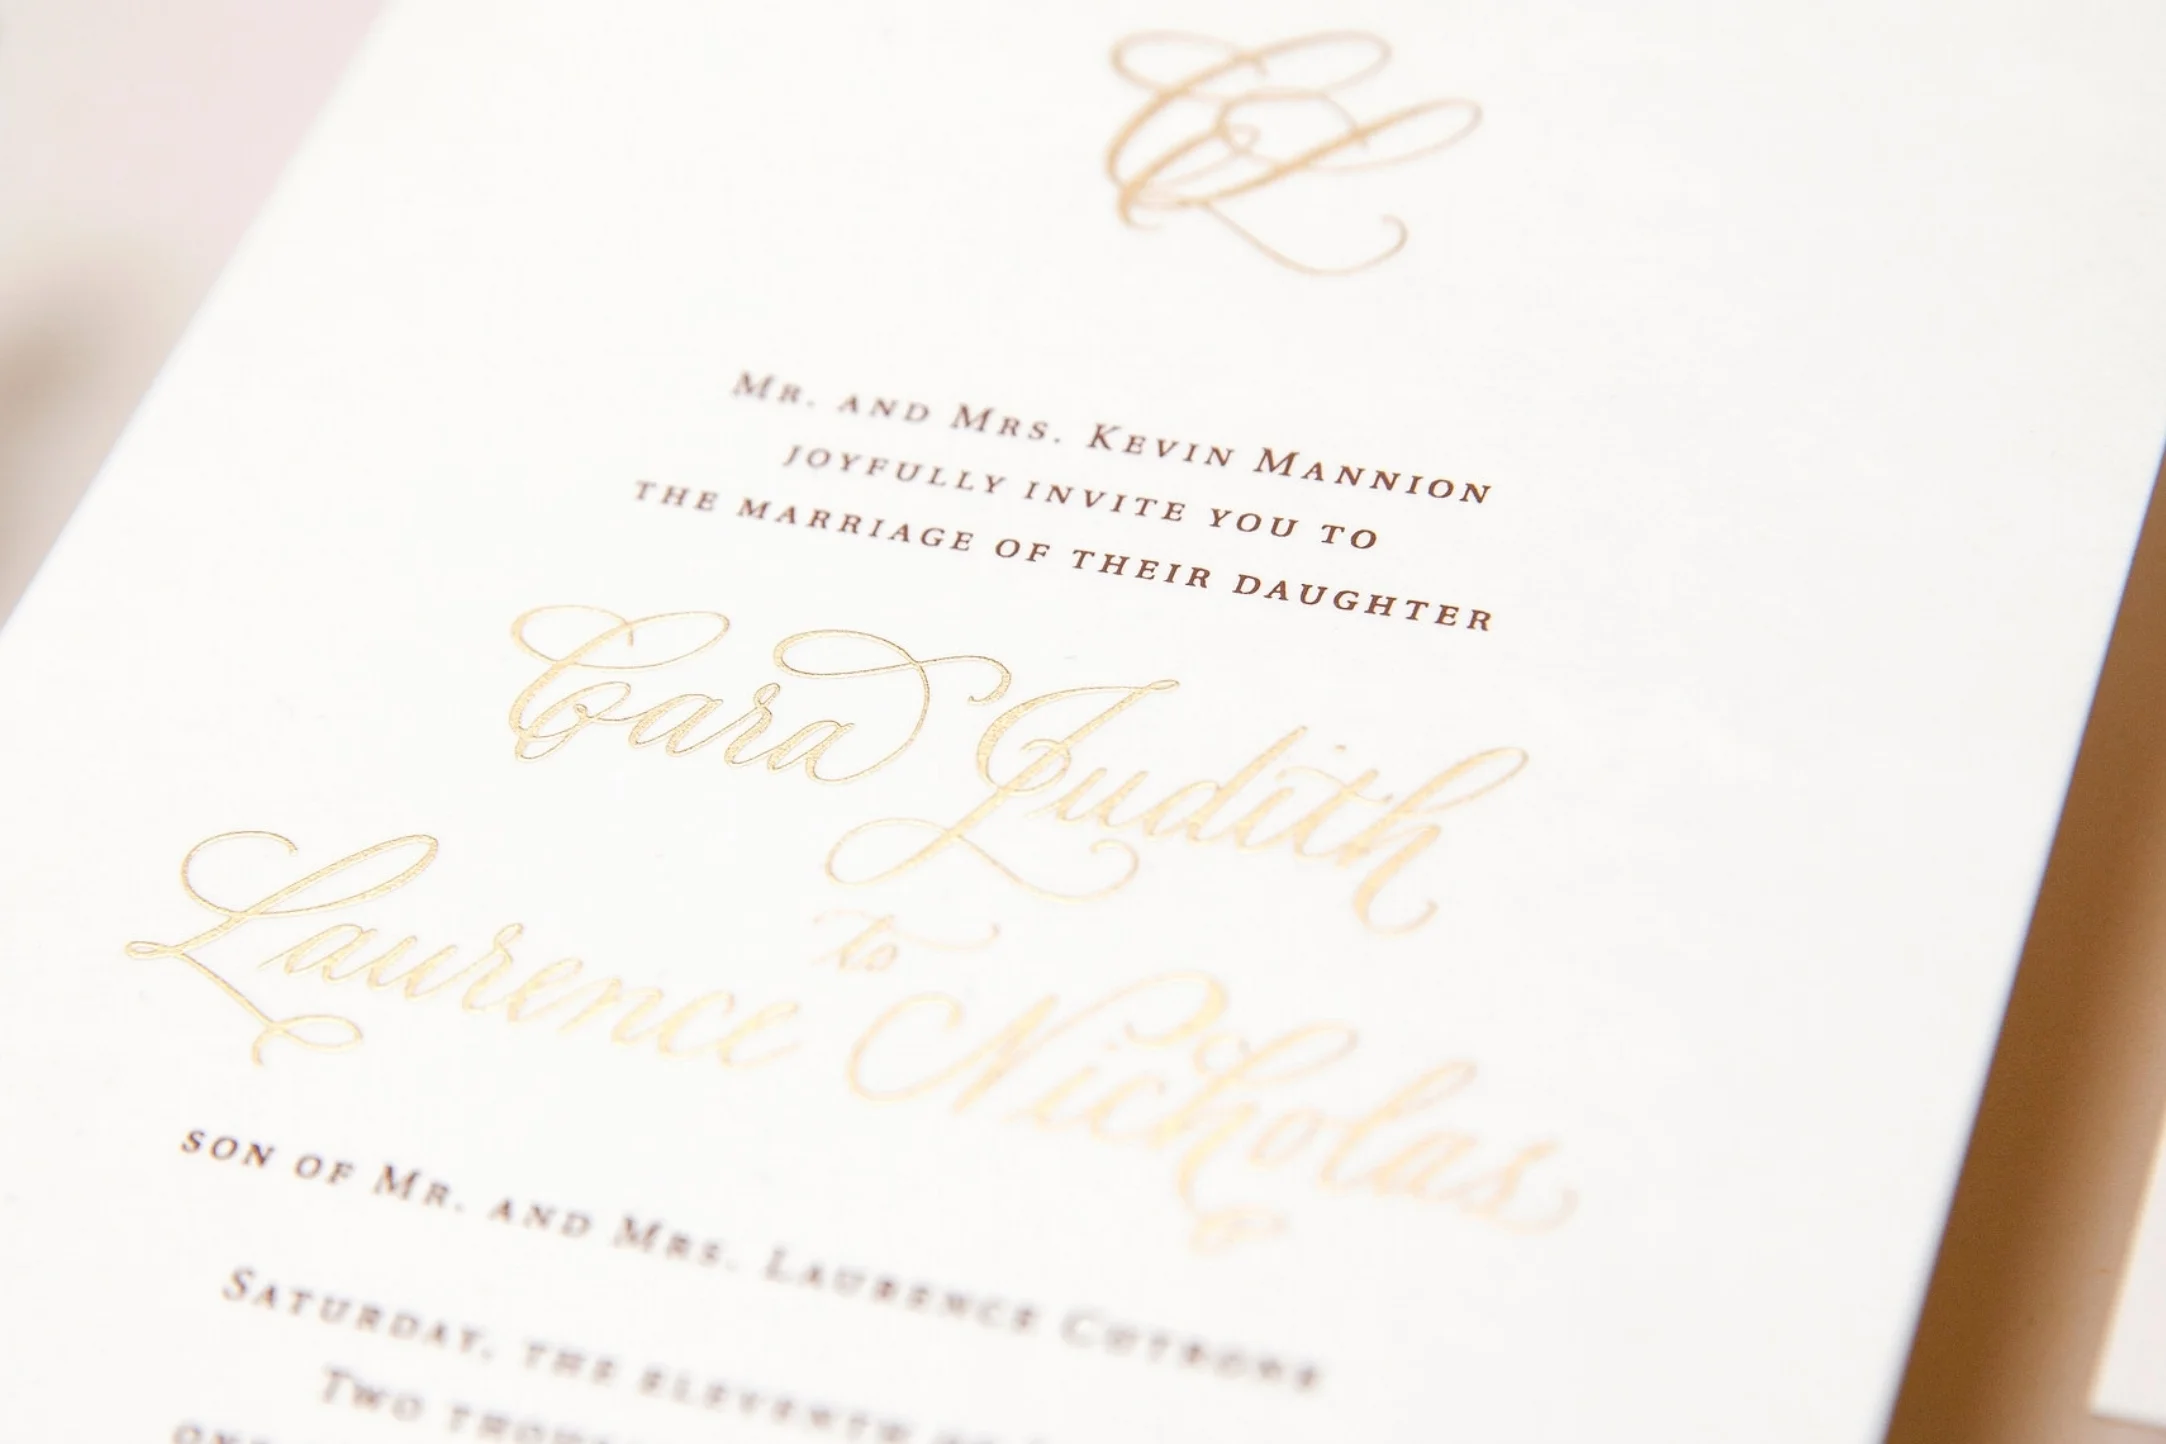 CL
Mr. and Mrs. Kevin Mannion
joyfully invite you to
the marriage of their daughter
Cara Judith
to
Laurence Nicholas
son of Mr. and Mrs. Laurence Cutrone
Saturday, the eleventh of
Two